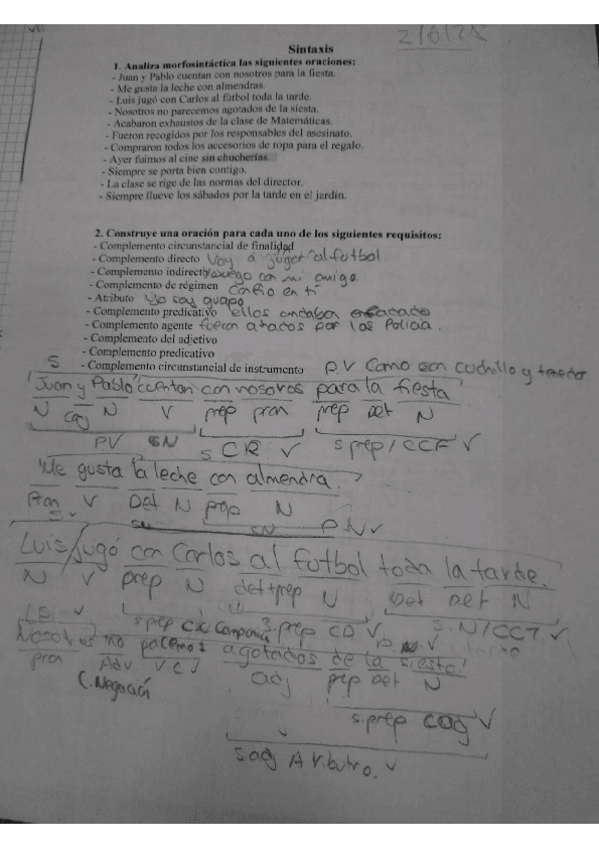 2/6/25
Sintaxis
1. Analiza morfosintáctica las siguientes oraciones:
- Juan y Pablo cuentan con nosotros para la fiesta.
- Me gusta la leche con almendras.
- Luis jugó con Carlos al fútbol toda la tarde.
- Nosotros no parecemos agotados de la siesta.
- Acabaron exhaustos de la clase de Matemáticas.
- Fueron recogidos por los responsables del asesinato.
- Compraron todos los accesorios de ropa para el regalo.
- Ayer fuimos al cine sin chucherías.
- Siempre se porta bien contigo.
- La clase se rige de las normas del director.
- Siempre llueve los sábados por la tarde en el jardín.
2. Construye una oración para cada uno de los siguientes requisitos:
- Complemento circunstancial de finalidad
- Complemento directo Voy a jugar al futbol
- Complemento indirecto juego con mi amigo
- Complemento de régimen Confío en tí
- Atributo Yo soy guapo
- Complemento predicativo ellos andaban enfadado
- Complemento agente fueron atados por los Policia.
- Complemento del adjetivo
- Complemento predicativo
- Complemento circunstancial de instrumento Como con cuchillo y tenedor
S P.V
Juan y Pablo cuentan con nosotros para la fiesta
N N V prep pron prep Det N
PV SN S CR V S prep/CCF V
Me gusta la leche con almendra.
Pron V Det N prep N
Luis/jugó con Carlos al futbol toda la tarde.
N V prep N det+prep N Det Det N
S prep CC Compañia prep CD V S.N/CCT. V
Nosotros no agotados de la siesta.
pron Adv V adj prep Det N
C. Negación
S.prep Cag V
S adj Atributo. V